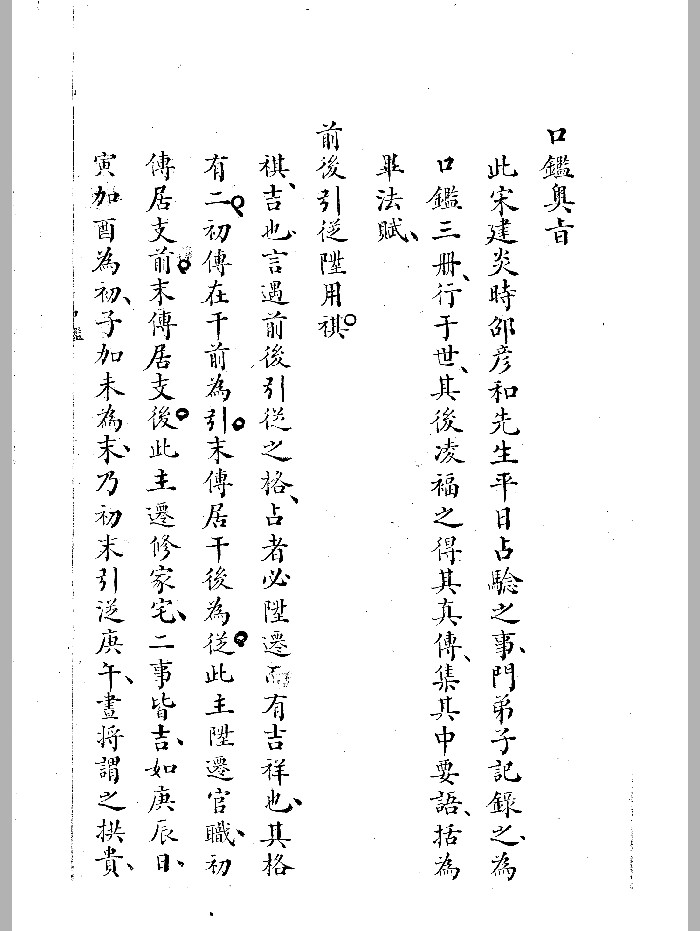 口鑑奥旨
此宋建炎時邵彦和先生平日占騐之事、門弟子記錄之、為
口鑑三册、行于世、其後凌福之得其真傳、集其中要語、括為
畢法賦、
前後引從陞用祺。
祺、吉也、言遇前後引從之格、占者必陞遷而有吉祥也、其格
有二。初傳在干前為引。末傳居干後為從。此主陞遷官職、初
傳居支前。末傳居支後。此主遷修家宅、二事皆吉、如庚辰日、
寅加酉為初、子加未為末、乃初末引從庚午、晝將謂之拱貴、